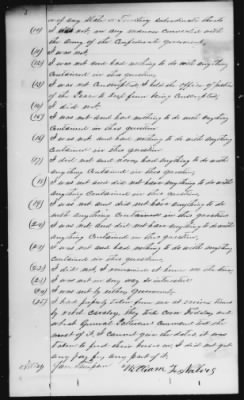 of any State or Territory
(10) I was not, in any manner connected with
the Army of the Confederate Government.
(11) I was not.
(12) I was not and had nothing to do with anything
contained in this question.
(13) I was not Conscripted, I held the office of
of the Peace & kept from being Conscripted.
(14) I did not.
(15) I was not and had nothing to do with anything
contained in this question
(16) I was not and had nothing to do with anything
contained in this question.
(17) I did not and never had anything to do with
anything contained in this question.
(18) I was not and did not have anything to do with
anything contained in this question.
(19) I was not and did not have anything to do
with anything contained in this question
(20) I was not and did not have anything to do with
anything contained in this question.
(21) I was not and had nothing to do with anything
contained in this question.
(22) I did not, I remained at home
(23) I was not in any way so interested
(24) I was not by either Government.
(25) I have property taken from me at various times
by rebel Cavalry, they took Corn Fodder, and
General Patterson Command took the
most of it. I cannot give the dates it was
taken to feed there horses on, I did not get
any pay for any part of it.
William